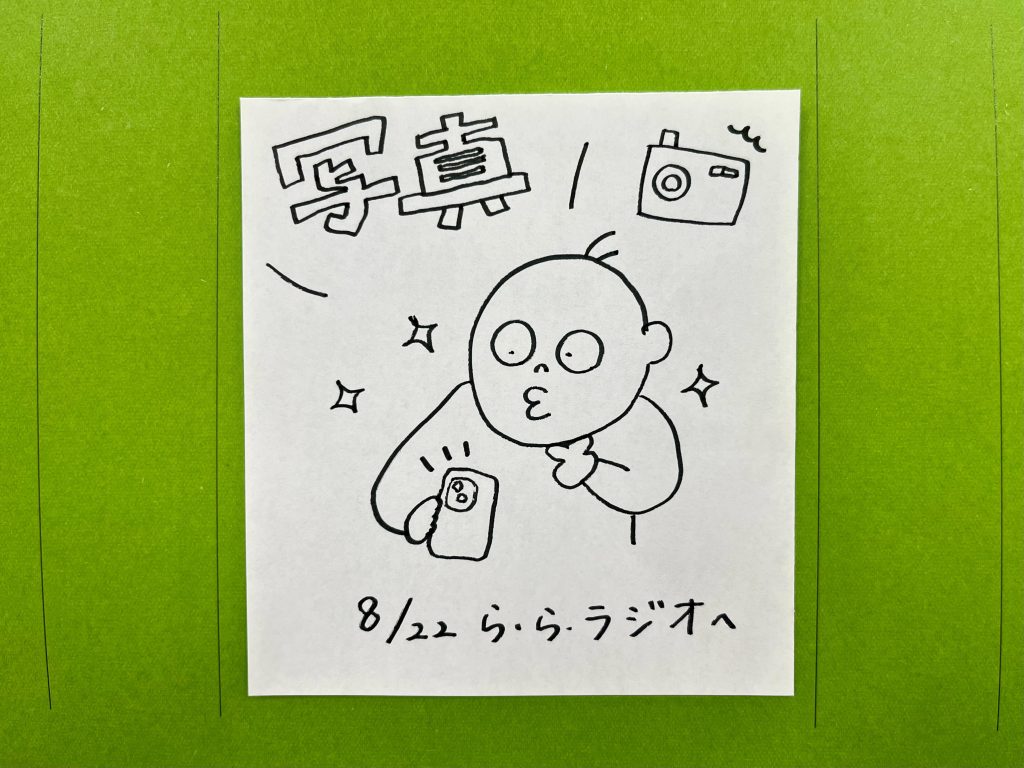 写真
8/22 ら・ら・ラジオへ